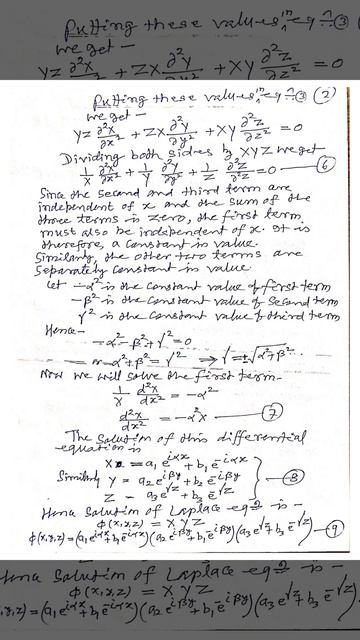 Putting these values in eqn ③
we get —
YZ ∂²X/∂x² + ZX ∂²Y/∂y² + XY ∂²Z/∂z² = 0
Putting these values in eqn ③ (2)
we get —
YZ ∂²X/∂x² + ZX ∂²Y/∂y² + XY ∂²Z/∂z² = 0
Dividing both sides by XYZ we get
1/X ∂²X/∂x² + 1/Y ∂²Y/∂y² + 1/Z ∂²Z/∂z² = 0 — ⑥
Since the second and third term are
independent of x and the sum of the
three terms is zero, the first term
must also be independent of x. It is
therefore, a constant in value.
Similarly, the other two terms are
separately constant in value.
Let -α² is the constant value of first term
-β² is the constant value of second term
γ² is the constant value of third term
Hence —
-α²-β²+γ²=0
α²+β²=γ² ⇒ γ=±√α²+β²
Now we will solve the first term-
1/X d²X/dx² = -α²
d²X/dx² = -α²X — ⑦
The solution of this differential
equation is
X = a₁e^iαx + b₁e^-iαx
Similarly Y = a₂e^iβy + b₂e^-iβy — ⑧
Z = a₃e^γz + b₃e^-γz
Hence Solution of Laplace eqn is -
ϕ(x,y,z) = XYZ
ϕ(x,y,z)=(a₁e^iαx+b₁e^-iαx)(a₂e^iβy+b₂e^-iβy)(a₃e^γz+b₃e^-γz) — ⑨
Hence Solution of Laplace eqn is -
ϕ(x,y,z) = XYZ
,y,z)=(a₁e^iαx+b₁e^-iαx)(a₂e^iβy+b₁e^-iβy)(a₃e^γz+b₃e^-γz)